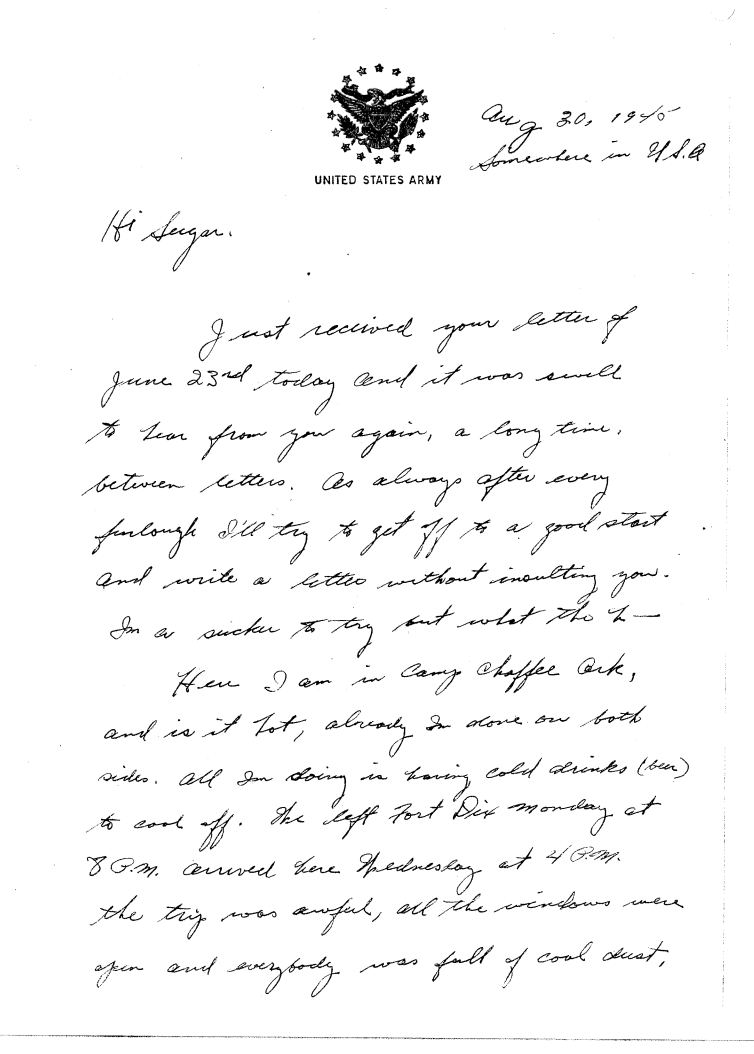 Aug 20, 1945
Somewhere in U.S.A
UNITED STATES ARMY
Hi Sugar.
Just received your letter of
June 23rd today and it was swell
to hear from you again, a long time,
between letters. As always after every
furlough I'll try to get off to a good start
and write a letter without insulting you.
Im a sucker to try but what the h—
Here I am in Camp Chaffee Ark,
and is it hot, already Im done on both
sides. All Im doing is having cold drinks (beer)
to cool off. We left Fort Dix Monday at
8 P.M. arrived here Wednesday at 4 P.M.
the trip was awful, all the windows were
open and everybody was full of coal dust,